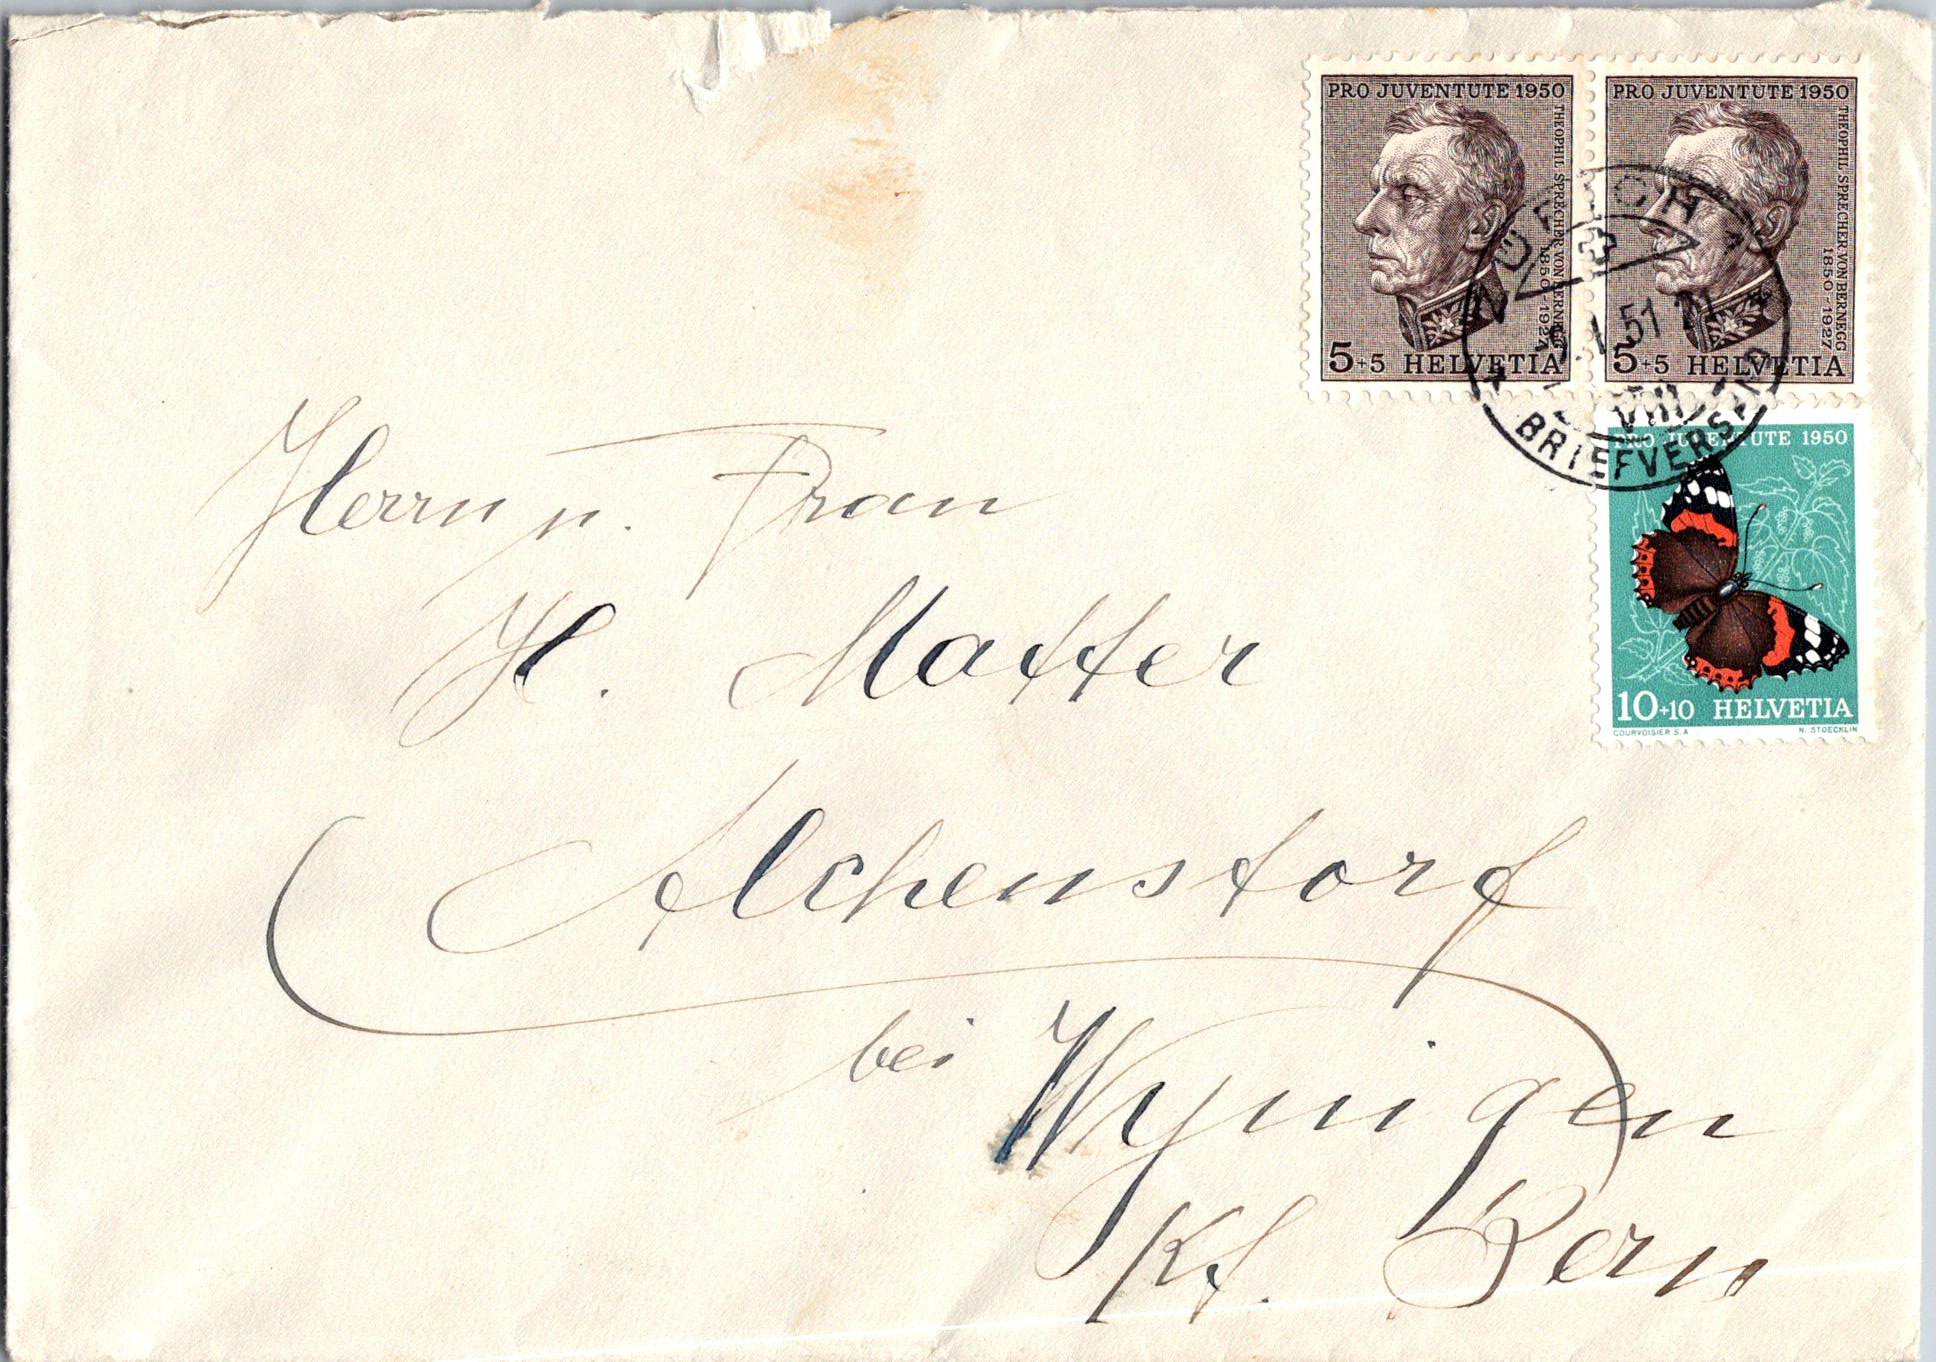 PRO JUVENTUTE 1950
THEOPHIL SPRECHER VON BERNEGG
1850-1927
5+5 HELVETIA
PRO JUVENTUTE 1950
THEOPHIL SPRECHER VON BERNEGG
1850-1927
5+5 HELVETIA
ZÜRICH
51
VIII
BRIEFVERSAND
PRO JUVENTUTE 1950
10+10 HELVETIA
COURVOISIER S.A
N. STOECKLIN
Herrn u. Frau
H. Matter
Alchenstorf
bei Wynigen
Kt. Bern